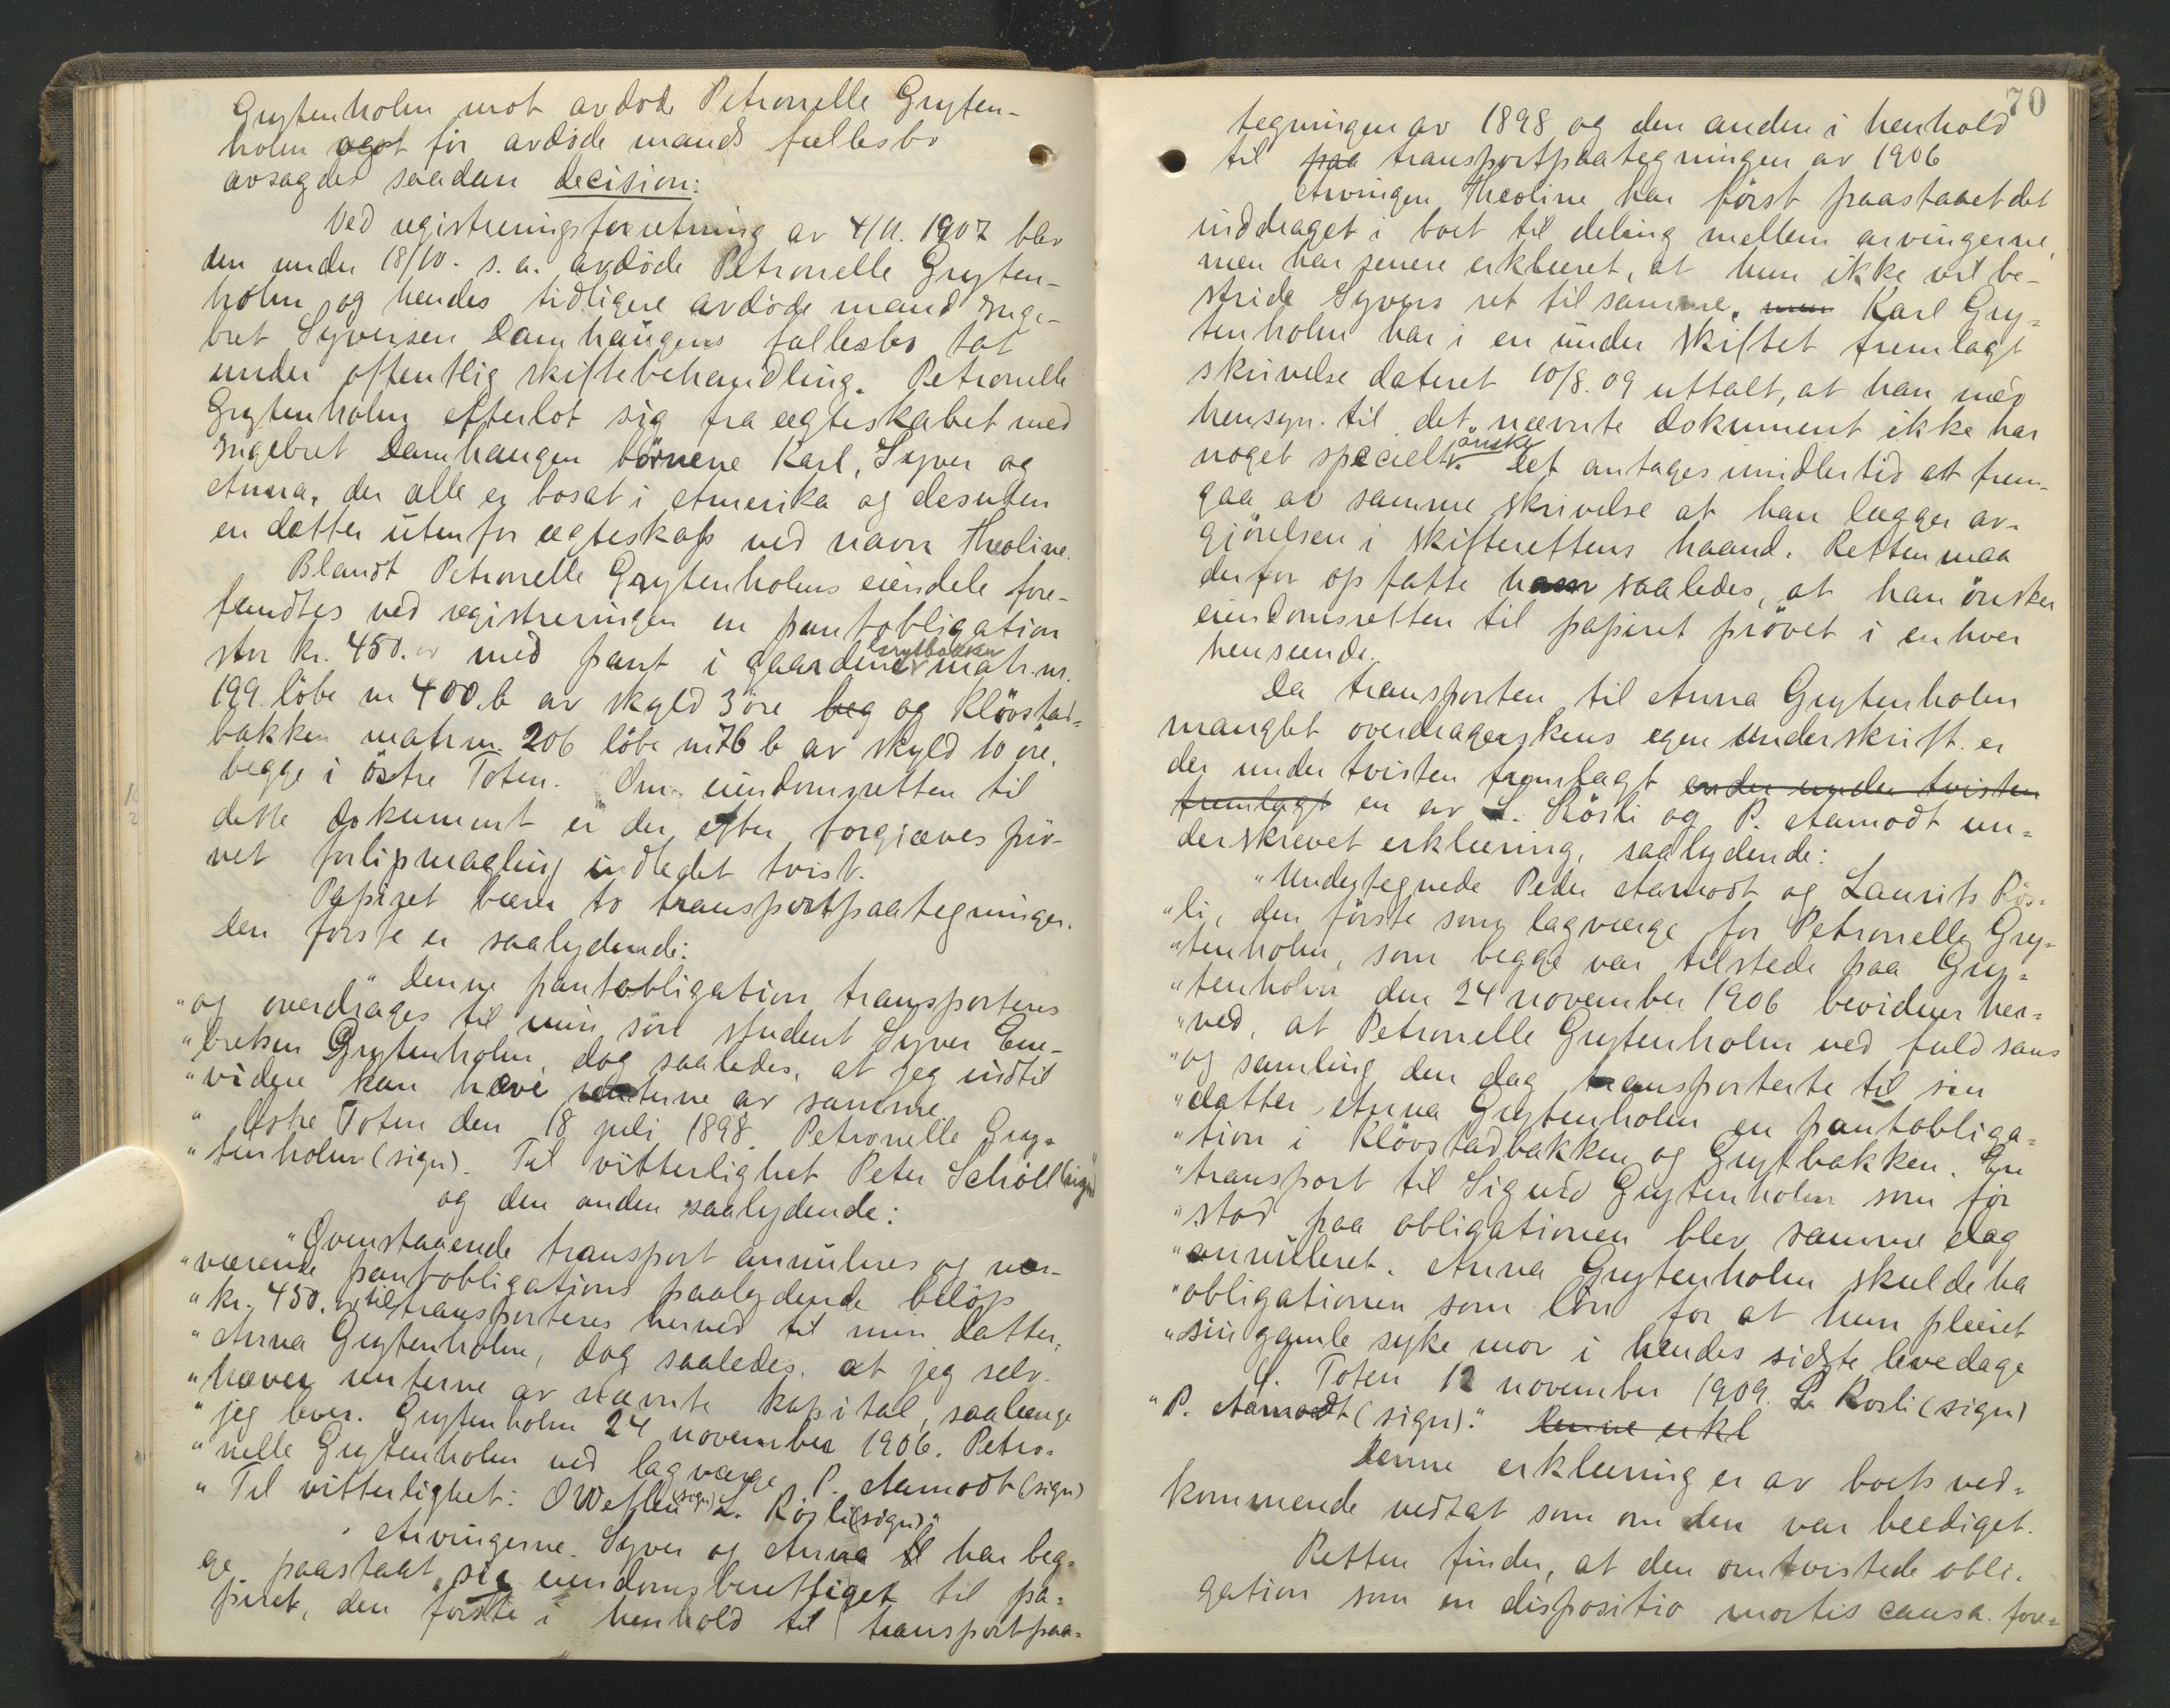 Grytenholm mot avdøde Petronelle Gryten-
holm og for avdøde mands fællesbo
avsagdes saadan decision:
Ved registreringsforretning av 4/11. 1907 blev
den under 18/10. s. a. avdöde Petronelle Gryten-
holm og hendes tidligere avdøde mand Inge-
bret Syversen Damhaugens fællesbo tat
under offentlig skiftebehandling. Petronelle
Grytenholm efterlot sig fra egteskabet med
Ingebret Damhaugen börnene Karl, Syver og
Anna, der alle er bosat i Amerika og desuten
en datter utenfor ægteskap ved navn Theoline.
Blandt Petronelle Grytenholms eiendele fore-
fandtes ved registreringen en pantobligation
stor kr. 450.00 med pant i gaardene Grytbakken matr. nr.
199 löbe nr 400.b av skyld 3 öre beg og Klövstad-
bakken matr. nr. 206 löbe nr 76 b av skyld 10 öre,
begge i östre Toten. Om eiendomsretten til
dette dokument er der efter forgjæves prö-
vet forlipsmægling indledet tvist.
Papiret bærer to transportpaategninger.
Den første er saalydende:
"Denne pantobligation transporteres
"og overdrages til min sön student Syver Em-
"bretsen Grytenholm, dog saaledes, at jeg indtil
"videre kan hæve renterne av samme
" Østre Toten den 18 juli 1898. Petronelle Gry-
"tenholm (sign). Til vitterlighet Peter Schöll (sign)"
og den anden saalydende:
"Ovenstaaende transport annuleres og nær-
"værende pantobligations paalydende belöp
"kr. 450.00 tiltransporteres herved til min datter,
"Anna Grytenholm, dog saaledes, at jeg selv
"hæver renterne av nævnte kapital, saalænge
"jeg lever. Grytenholm 24 november 1906. Petro-
"nelle Grytenholm ved lagværge P. Aamodt (sign)
"Til vitterlighet: O Weflen (sign) L. Rösli (sign)"
Arvingerne Syver og Anna har beg-
ge paastaat sig eiendomsberettiget til pa-
piret, den første i henhold til transportpaa-
70
tegningen av 1898 og den anden i henhold
til paa transportpaategningen av 1906
Arvingen Theoline har först paastaaet det
inddraget i boet til deling mellem arvingerne,
men har senere erklæret, at hun ikke vil be-
stride Syvers ret til samme, men Karl Gry-
tenholm har i en under skiftet fremlagt
skrivelse dateret 10/8. 09 uttalt, at han med
hensyn til det nævnte dokument ikke har
noget specielt önske. Det antages imidlertid at frem-
gaa av samme skrivelse at han lægger av-
gjörelsen i skifterettens haand. Retten maa
derfor opfatte ham saaledes, at han önsker
eiendomsretten til papiret prövet i enhver
henseende.
Da transporten til Anna Grytenholm
manglet overdragerskens egen underskrift er
der under tvisten fremlagt en der under tvisten
fremlagt en av L. Rösli og P. Aamodt un-
derskrevet erklæring, saalydende:
"Undertegnede Peder Aamodt og Laurits Rös-
"li, den første som lagværge for Petronelle Gry-
"tenholm, som begge var tilstede paa Gry-
"tenholm den 24 november 1906 bevidner her-
"ved, at Petronelle Grytenholm ved fuld sans
"og samling den dag transporterte til sin
"datter Anna Grytenholm en pantobliga-
"tion i Klövstadbakken og Grytbakken. En
"transport til Sigurd Grytenholm som før
"stod paa obligationen blev samme dag
"annulleret. Anna Grytenholm skulde ha
"obligationen som lön for at hun pleiet
"sin gamle syke mor i hendes sidste levedage
Ö. Toten 12 november 1909. L. Rosli (sign)
"P. Aamodt (sign)." Denne erkl
Denne erklæring er av boets ved-
kommende vedtat som om den var beediget.
Retten finder, at den omtvistede obli-
gation som en dispositio mortis causa fore-